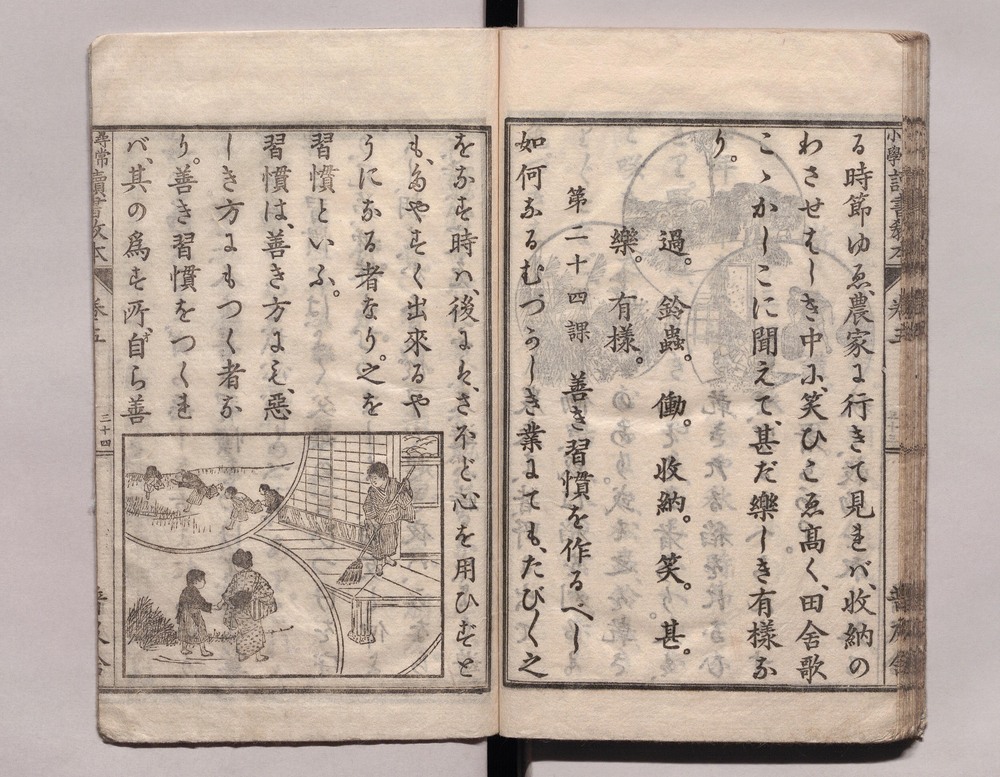 る時節ゆゑ、農家に行きて見れバ、收納の
わさせはしき中に、笑ひごゑ高く、田舍歌
こゝかしこに聞えて、甚だ樂しき有樣な
り。
過。鈴蟲。働。收納。笑。甚。
樂。有樣。
第二十四課 善き習慣を作るべし
如何なるむづかしき業にても、たび〱之
をなす時ハ、後にハ、さホど心を用ひずと
も、たやすく出來るや
うになる者なり。之を
習慣といふ。
習慣は、善き方にも、惡
しき方にもつく者な
り。善き習慣をつくれ
バ、其の爲す所、自ら善
尋常讀書敎本
卷五
二十四
普及舍